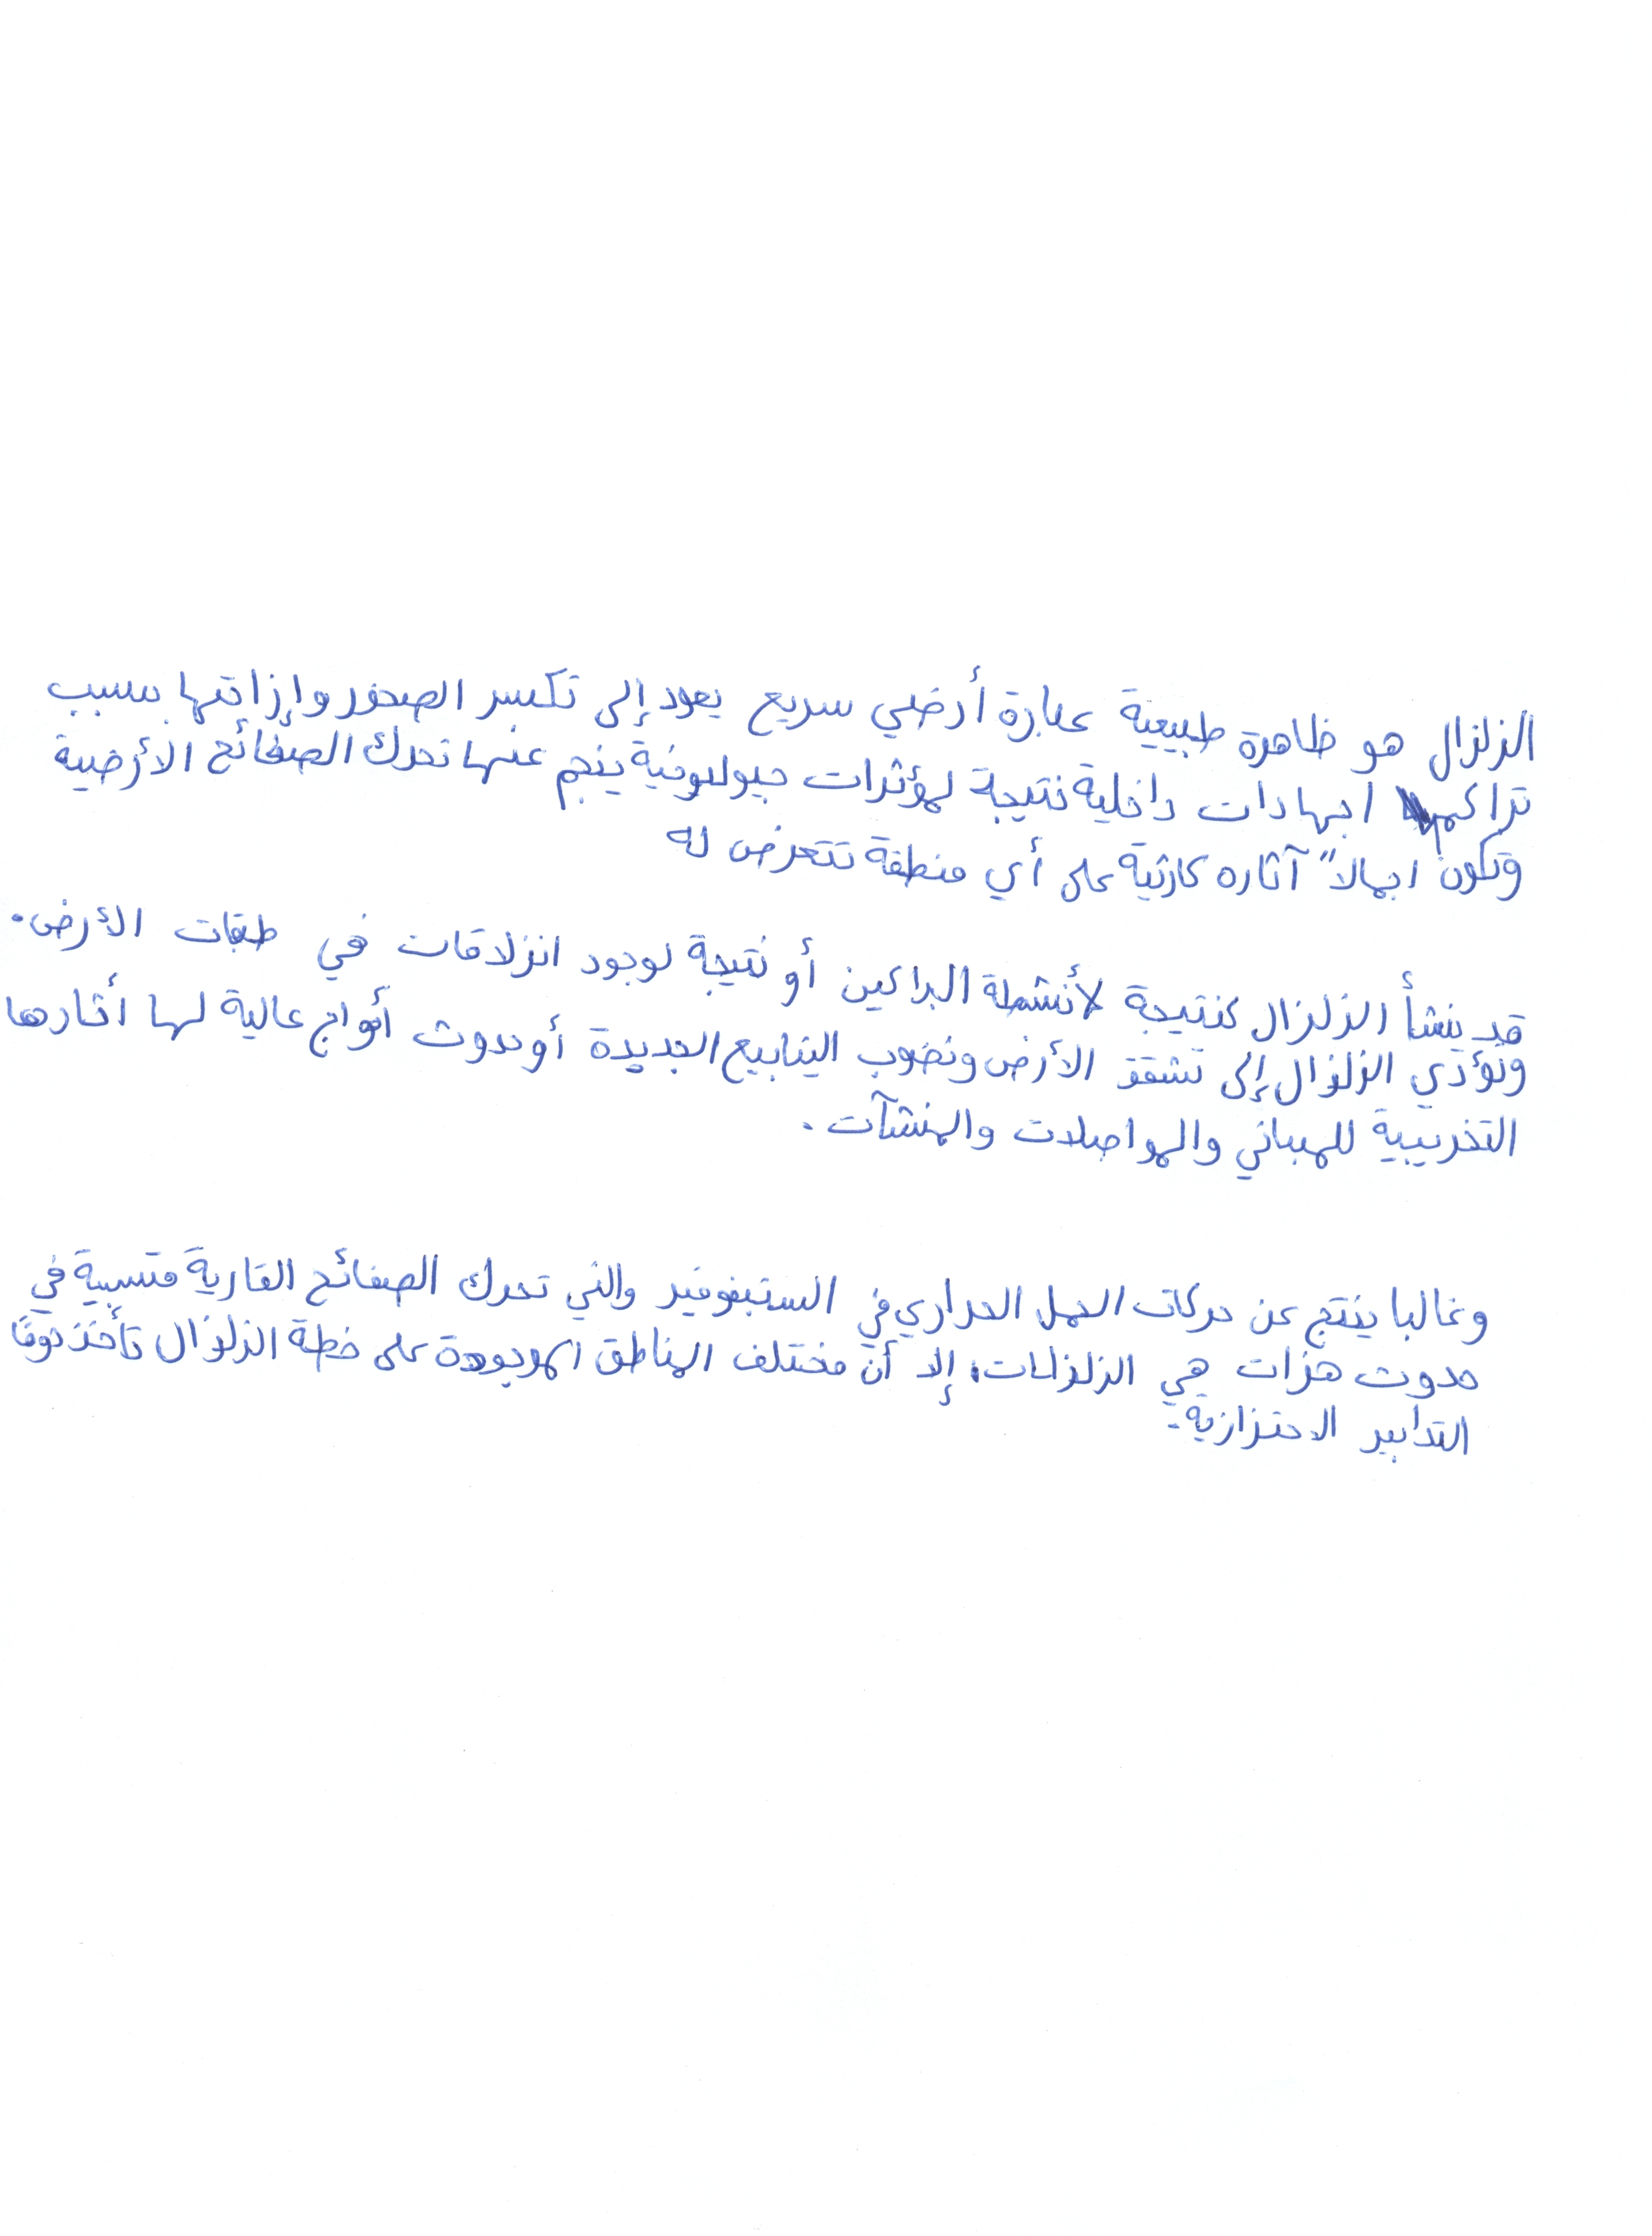 الزلزال هو ظاهرة طبيعية عبارة أرضي سريع يعود إلى تكسر الصخور وإزاقتها بسبب
تراكم اجهادات داخلية نتيجة لمؤثرات جيولوجية ينجم عنها تحرك الصفائح الأرضية
وتكون اجمالاً آثاره كارثية على أي منطقة تتعرض له
قد ينشأ الزلزال كنتيجة لأنشطة البراكين أو نتيجة لوجود انزلاقات في طبقات الأرض.
ويؤدي الزلزال إلى تشقق الأرض ونضوب الينابيع الجديدة أو حدوث أمواج عالية لها أثارها
التخريبية للمباني والمواصلات والمنشآت.
وغالبا ينتج عن حركات الحمل الحراري في الستينوفير والتي تحرك الصفائح القارية متسببة في
حدوث هزات هي الزلزالات، إلا أن مختلف المناطق الموجودة على خطة الزلزال تأخذ دومًا
التدابير الاحترازية.